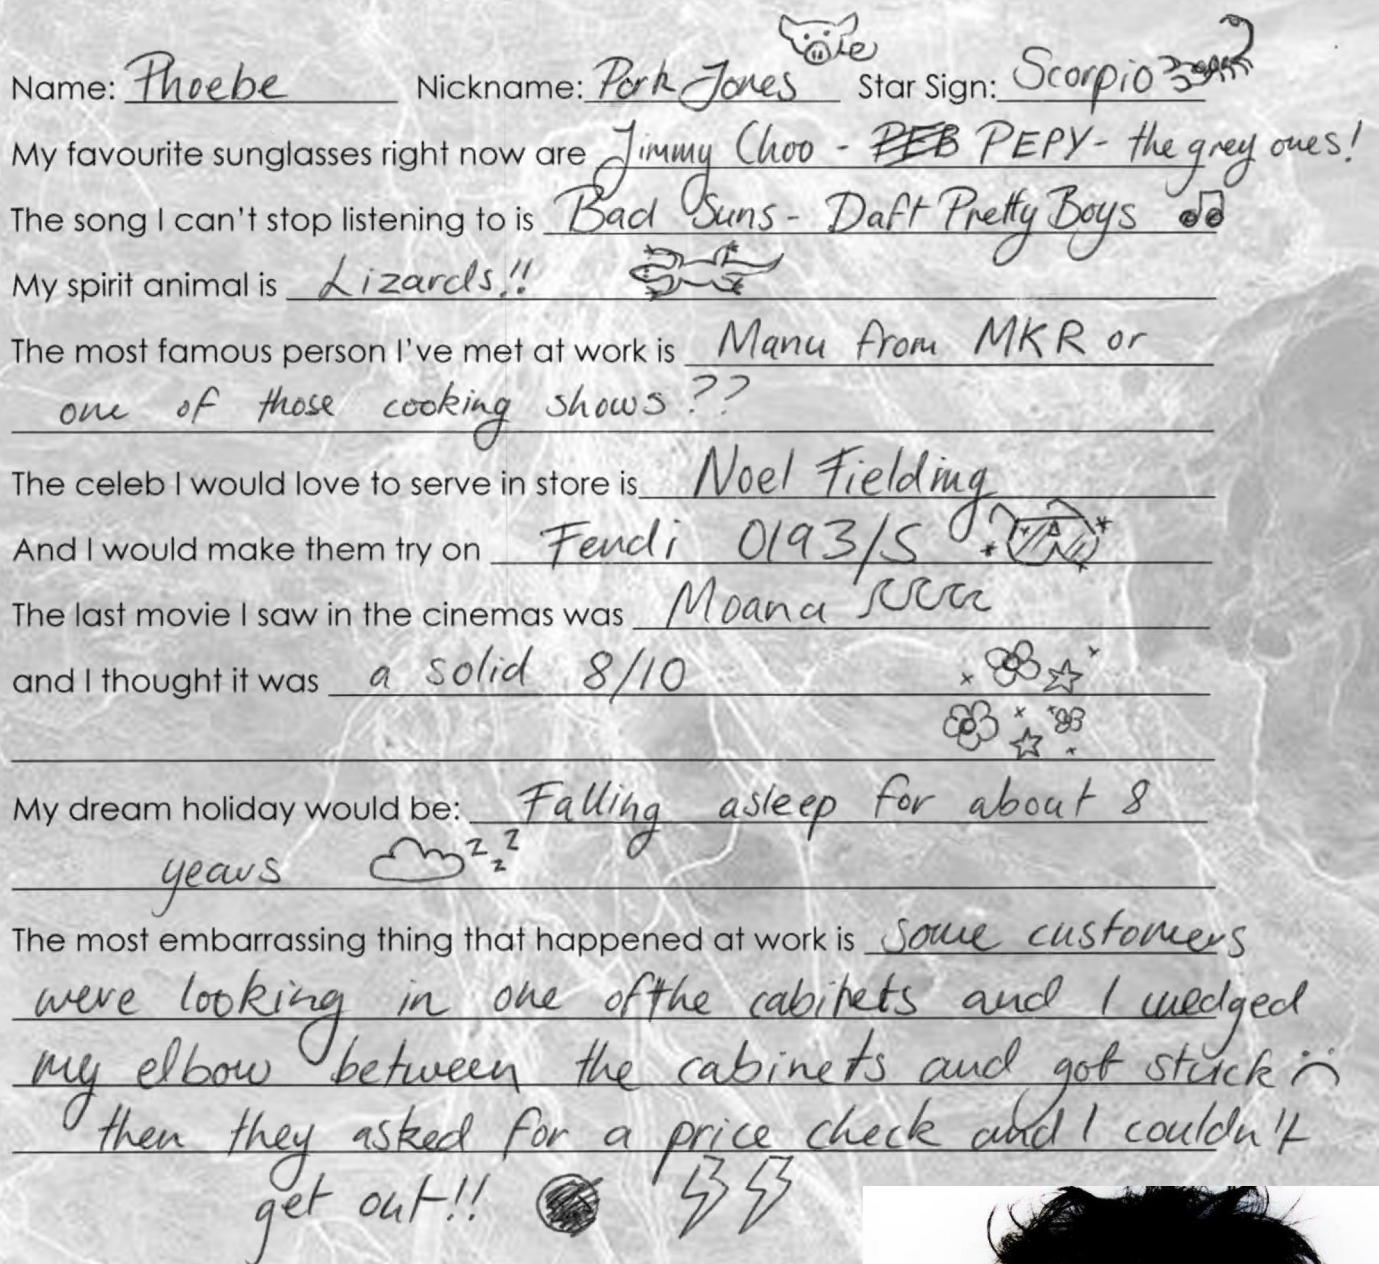 Name: Phoebe Nickname: Pork Jones Star Sign: Scorpio
My favourite sunglasses right now are Jimmy Choo - PEB PEPY - the grey ones!
The song I can't stop listening to is Bad Suns - Daft Pretty Boys
My spirit animal is Lizards!!
The most famous person I've met at work is Manu from MKR or
one of those cooking shows??
The celeb I would love to serve in store is Noel Fielding
And I would make them try on Fendi 0193/S
The last movie I saw in the cinemas was Moana
and I thought it was a solid 8/10
My dream holiday would be: Falling asleep for about 8
years zzz
The most embarrassing thing that happened at work is some customers
were looking in one of the cabinets and I wedged
my elbow between the cabinets and got stuck :(
then they asked for a price check and I couldn't
get out!!